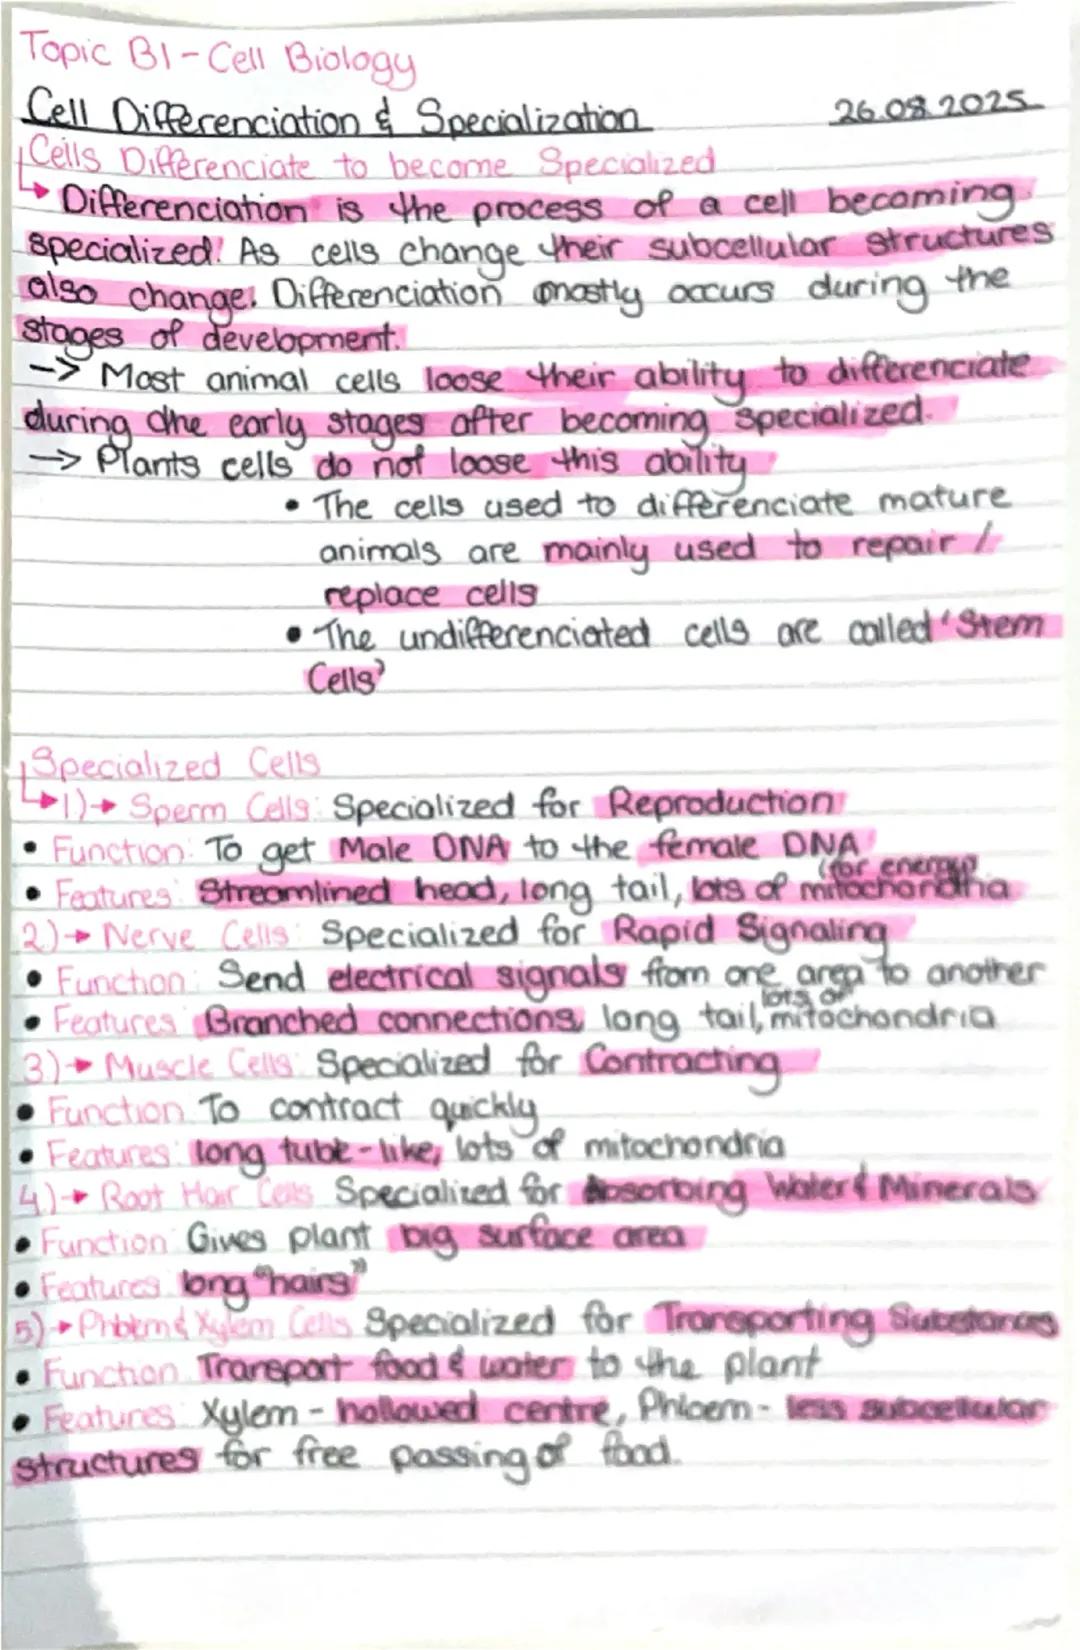 Topic B1 - Cell Biology
Cell Differenciation & Specialization 26.08.2025
Cells Differenciate to become Specialized
Differenciation is the process of a cell becoming
specialized. As cells change their subcellular structures
also change. Differenciation mostly occurs during the
stages of development.
-> Most animal cells loose their ability to differenciate
during the early stages after becoming specialized.
-> Plants cells do not loose this ability
• The cells used to differenciate mature
animals are mainly used to repair /
replace cells
• The undifferenciated cells are called 'Stem
Cells'
Specialized Cells
1) → Sperm Cells: Specialized for Reproduction
• Function: To get Male DNA to the female DNA
(for energy)
• Features: Streamlined head, long tail, lots of mitochandria
2.) → Nerve Cells: Specialized for Rapid Signaling
• Function: Send electrical signals from one area to another
lots of
• Features: Branched connections, long tail, mitochondria
3.) → Muscle Cells: Specialized for Contracting
• Function: To contract quickly
• Features: long tube-like, lots of mitochondria
4.) → Root Hair Cells Specialized for Absorbing Water & Minerals
• Function Gives plant big surface area
• Features long "hairs"
5) → Phloem & Xylem Cells Specialized for Transporting Substances
• Function Transport food & water to the plant
• Features: Xylem - hollowed centre, Phloem - less subcellular
structures for free passing of food.